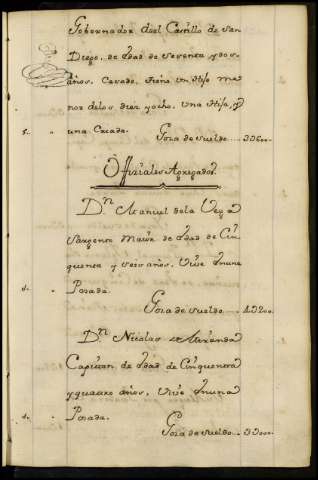 Gobernador del Castillo de San
Diego, de edad de Sesenta y dos
años, Casado, tiene un Hijo me
nor de los diez y ocho, una Hija, y
5.. " una Criada.
Goza de sueldo
Offiziales Agregados.
Dn. Manuel de la Vega
Sargento Maior de edad de Cin
quenta y seis años, Vive en una
1.. " Posada.
Goza de sueldo
Dn. Nicolas de Miranda
Capitan de edad de Cinquenta
y quatro años, Vive en una
1.. " Posada.
Goza de sueldo